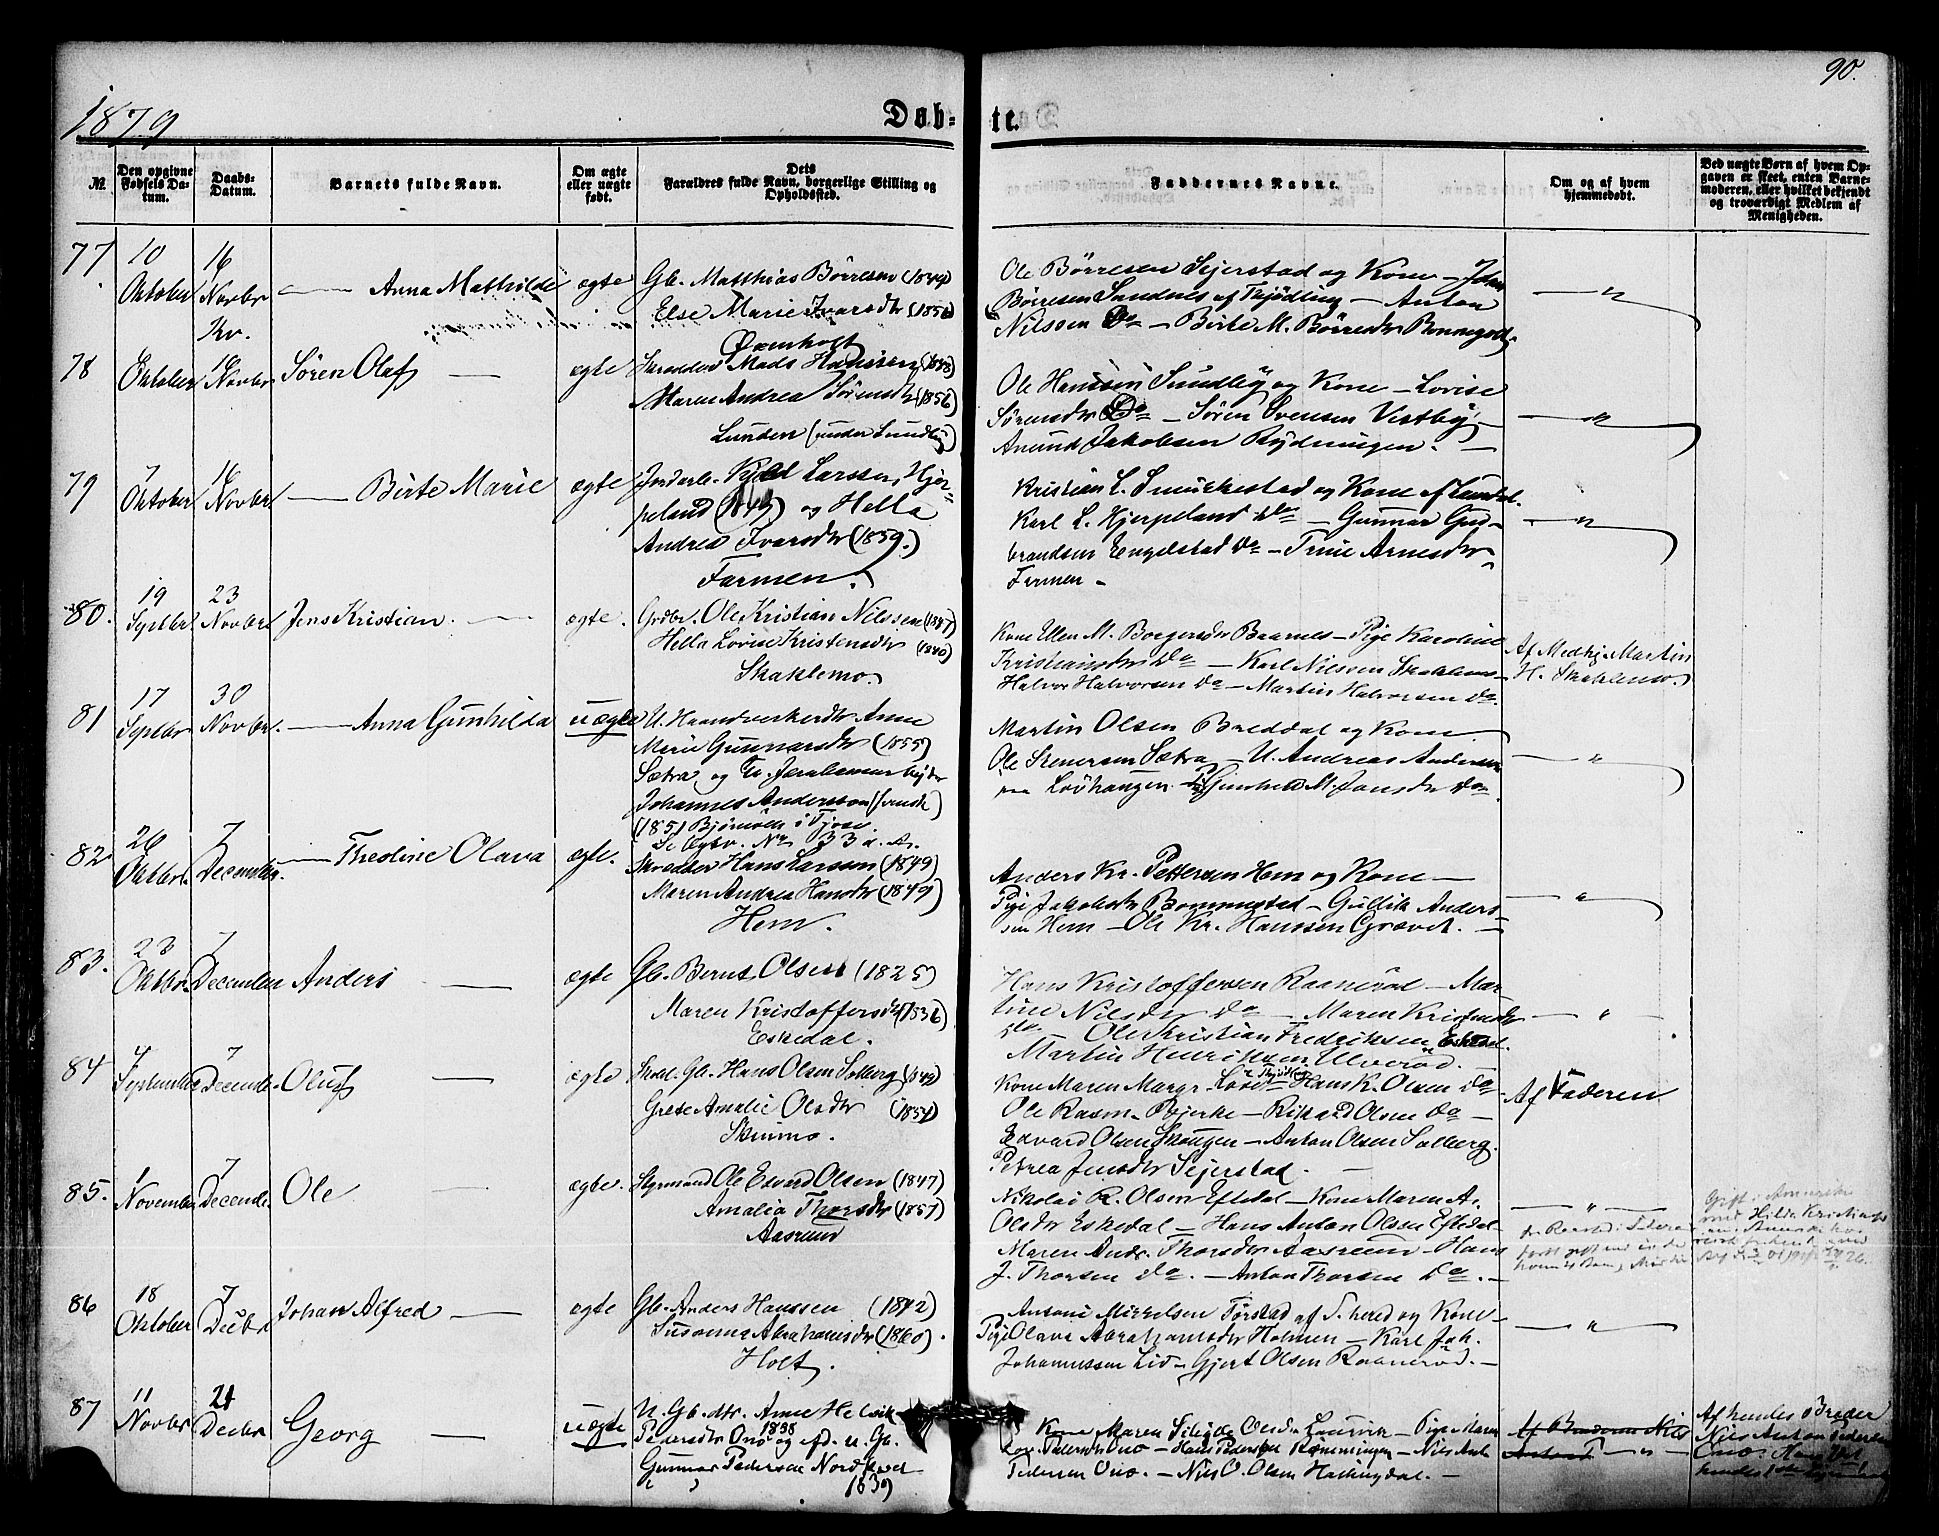 1879
Døb-
te.
90.
№
Den opgivne Fødsels Datum.
Daabs-Datum.
Barnets fulde Navn.
Om ægte eller uægte født.
Dets Forældres fulde Navn, borgerlige Stilling og Opholdssted.
Faddernes Navne.
Om og af hvem hjemmedøbt.
Ved uægte Børn af hvem Opgaven er skeet, enten Barnemoderen, eller hvilket bekjendt og troværdigt Medlem af Menigheden.
77
10 Oktober
16 Novbr
Kv.
Anna Mathilde
ægte
Gb. Matthias Børresen (1844)
Else Marie Ivarsdtr (1856)
Øxenholt
Ole Børresen Sejerstad og Kone - John
Børresen Sandnes af Thjødling - Anton
Nilssen Do - Birte M. Børresdtr
78
Oktober
16 Novbr
Søren Olaf
ægte
Skrædder Mads Hanssen (1848)
Maren Andrea Sørensdtr (1856)
Lunden (under Sundby)
Ole Hanssen Sundby og Kone - Lovise
Sørensdtr Do - Søren Svensen Vestby
Anund Jakobsen Rydningen. -
79
7 Oktober
16 Novbr
Birte Marie
ægte
Larssen, Hjør-
peland og Hella
Andrea Ivarsdtr (1859.)
Farmen.
Kristian L. Smukkestad og Kone af
Karl L. Hjerpeland Do - Gunnar Gud-
brandsen Engelstad Do - Trine Arnesdtr
Farmen -
80.
19 Septbr.
23 Novbr
Jens Kristian.
ægte.
Grdbr. Ole Kristian Nilssen (1847)
Hella Lovise Kristensdtr (1840)
Skaklemo.
Kone Ellen M. Borgersdtr Baarnes - Pige Karoline
Kristiansdtr Do - Karl Nilssen
Halvor Halvorsen Do - Martin Halvorsen Do.
Af Medhj. Martin
H. Skaklemo.
81
17 Septbr
30 Novbr.
Anna Gunhilda
uægte
U. Haandverkerdtr Anne
Marie Gunnarsdtr (1855)
Sætra, og U.
Johannes Andersson (svensk)
(1851)
No 33 a. A.
Martin Olsen Breddal og Kone
Ole Stenersen Sætra - U. Andreas Andersen
Løvhaugen Gunhild M. Jansdtr Do
82
26 Oktbr.
7 December.
Thedine Olava
ægte.
Skrædder Hans Larsen (1849)
Maren Andrea Hansdtr (1849)
Hem.
Anders Kr. Pettersen Hem og Kone -
Pige Jakobsdtr Bommestad - Gullik Anders-
sen Hem - Ole Kr. Hanssen Grævet. -
83.
23 Oktbr.
7 December
Anders
ægte
Gb. Bernt Olsen (1825)
Maren Kristoffersdtr (1836)
Eskedal.
Hans Kristoffersen Raanerød - Mar-
tine Nilsdtr Do - Maren Kristensdtr
Do - Ole Kristian Fredriksen Eskedal.
Martin Henriksen Ulverød.
84
4 September
7 December
Oluf
ægte
Gb. Hans Olsen Solberg (1849)
Grete Amalie Olsdtr (1854)
Skinmo.
Kone Maren Margr. - Hans K. Olsen Do
Ole Rasm. Bjerke - Rikard Olsen Do -
Edvard Olsen Skougen - Anton Olsen Solberg.
Petrea Jensdtr Sejerstad. -
Af Faderen
85.
1 November
7 December.
Ole
ægte.
Styrmand Ole Edvard Olsen (1847)
Amalia Thorsdtr (1857)
Aasrum
Nikolai R. Olsen Eftedal - Kone Maren A.
Olsdtr Eskedal - Hans Anton Olsen Eftedal
Maren Andr. Thorsdtr Aasrum - Hans
J. Thorsen Do. - Anton Thorsen Do. -
Gift i Amerika
med Hilda
86
18 Oktober
7 Decbr
Johan Alfred
ægte
Gb. Anders Hanssen (1842)
Susanna Abrahamsdtr (1860)
Holt.
Antoni Mikkelsen Torstad af S. herred og Kone -
Pige Olava Abrahamsdtr Holmen - Karl Joh.
Johannessen Lid - Gjert Olsen Raanerød. -
87
11 Novbr
21 Decbr
Georg
uægte
U. Gb. dtr. Anne Helvik
Pedersdtr Ono 1838 og efd. u. Gb.
Gunnar Pedersen
1839
Kone Maren Olsdtr Laurvik - Pige Maren
Lov. Pedersdtr Ono - Hans Pedersen Rønningen - Nils Ant.
Pedersen Ono. - Nils O. Olsen Hallingdal. -
Af Nils
Anton
Af hendes Broder
Nils Anton Pedersen
Ono.